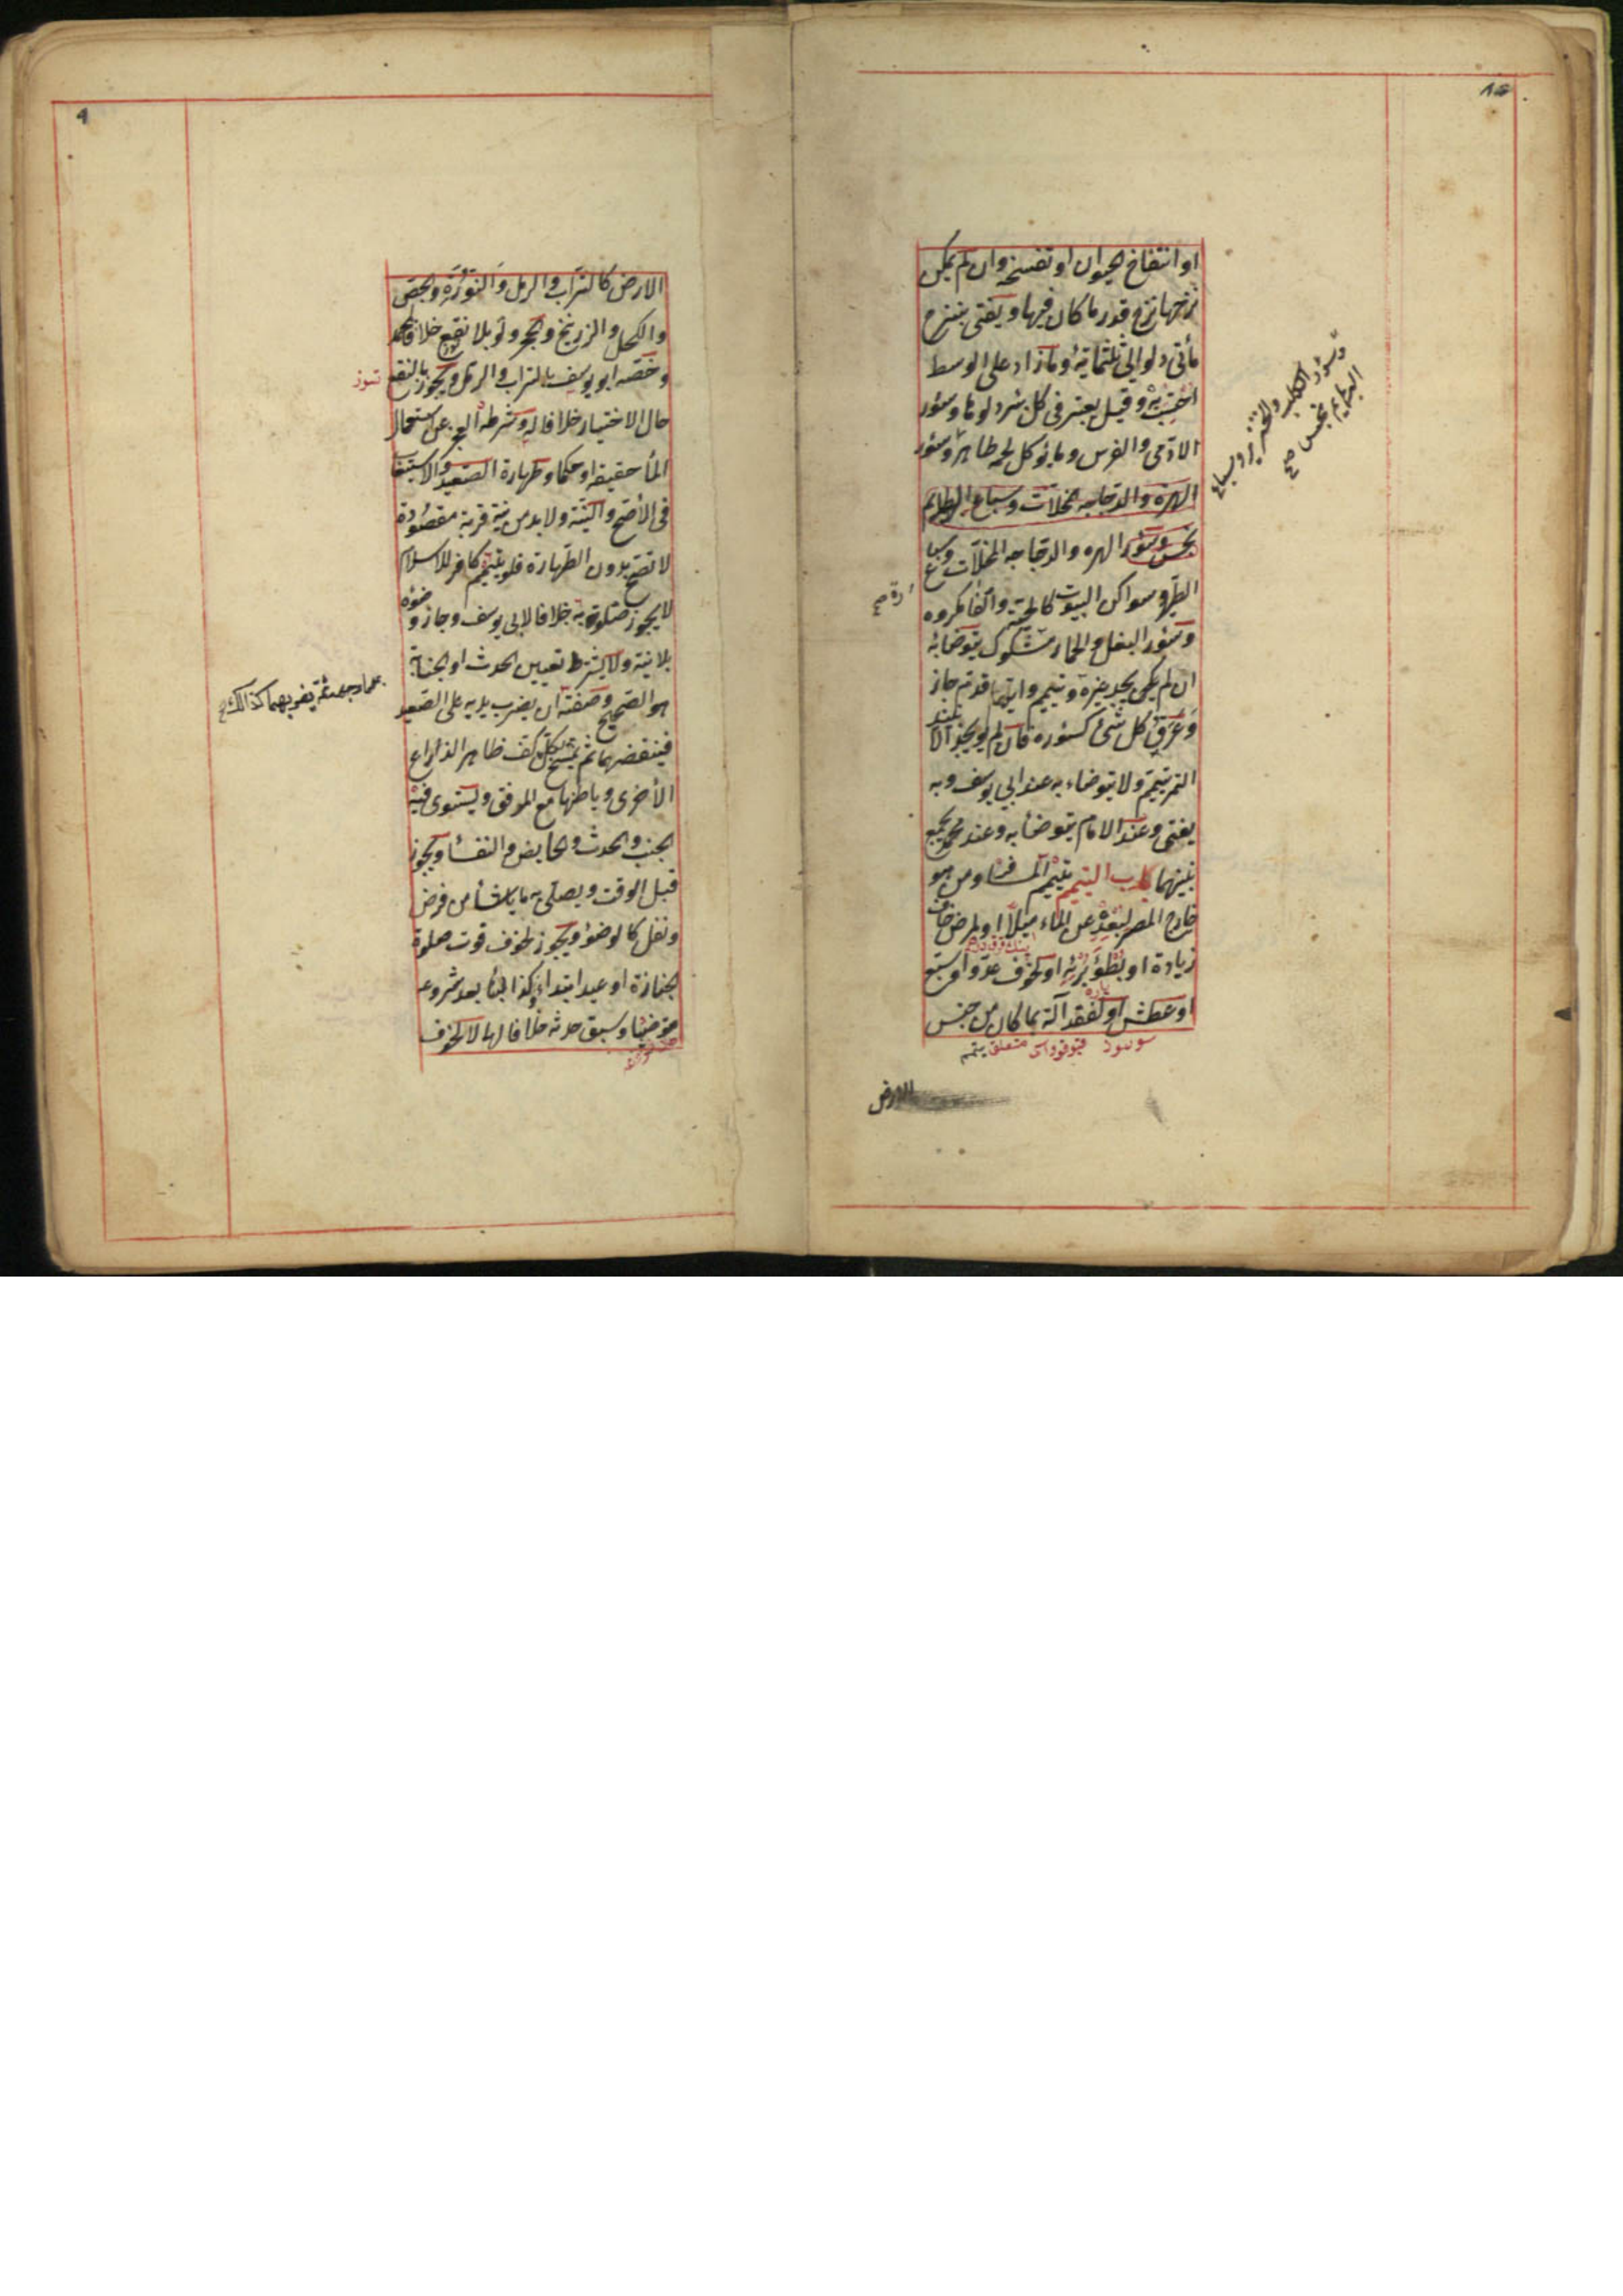 او انتفاخ الحيوان او تفسخه وان لم يمكن
نزحها نزح قدر ما كان فيها ويفتى بنزح
مأتى دلو الى ثلثمائة وما زاد على الوسط
احتسب به وقيل يعتبر فى كل بئر دلوها وسئور
الادمى والفرس وما يؤكل لحمه طاهر وسئور
الهرة والدجاجه المخلات وسباع البهايم
نجس وسئور الهره والدجاجه المخلات وسباع
الطير وسواكن البيوت كالحية والفأ مكروه
وسئور البغل والحمار مشكوك يتوضأ به
ان لم يكن يجد غيره وتيمم وايا قدم جاز
وعرق كل شئ كسئوره فان لم يوجد الا نبيذ
التمر تيمم ولا يتوضاء به عند ابى يوسف وبه
يفتى وعند الامام يتوضأ به وعند محمد يجمع
بينهما باب التيمم تيمم المسافر ومن هو
خارج المصر لبعده عن الماء ميلا او لمرض خاف
زيادة او بطؤ برئه او لخوف عدو او سبع
او عطش او لفقد آلة بما كان من جنس
متعلق يتمم
الارض
وسئور الكلب والخنزير وسباع
البهايم نجس صح
رة صح
الارض كالتراب والرمل والنورة والجص
والكحل والزرنيخ والحجر ولو بلا نقع خلافا لمحمد
وخصه ابو يوسف بالتراب والرمل ويجوز بالنقع
توز
حال الاختيار خلافا له وشرطه العجز عن استعمال
المأ حقيقة او حكما وطهارة الصعيد والاستيعاب
فى الأصح والنية ولا بد من نية قربة مقصودة
لا تصح بدون الطهارة فلو تيمم كافر للاسلام
لا يجوز صلوته به خلافا لابى يوسف وجاز وضوئه
بلا نية ولا يشترط تعيين الحدث او الجنابة
هو الصحيح وصفته ان يضرب يديه على الصعيد
فينفضهما ثم يمسح بكل كف ظاهر الذراع
الأخرى وباطنها مع المرفق ويستوى فيه
الجنب والحدث والحايض والنفسأ ويجوز
قبل الوقت ويصلى به ما شأ من فرض
ونفل كالوضوء ويجوز لخوف فوت صلوة
جنازة او عيد ابتداء وكذا بنأ بعد شروعه
متوضيا وسبق حدثه خلافا لهما لا لخوف
ثم يضربهما كذالك صح